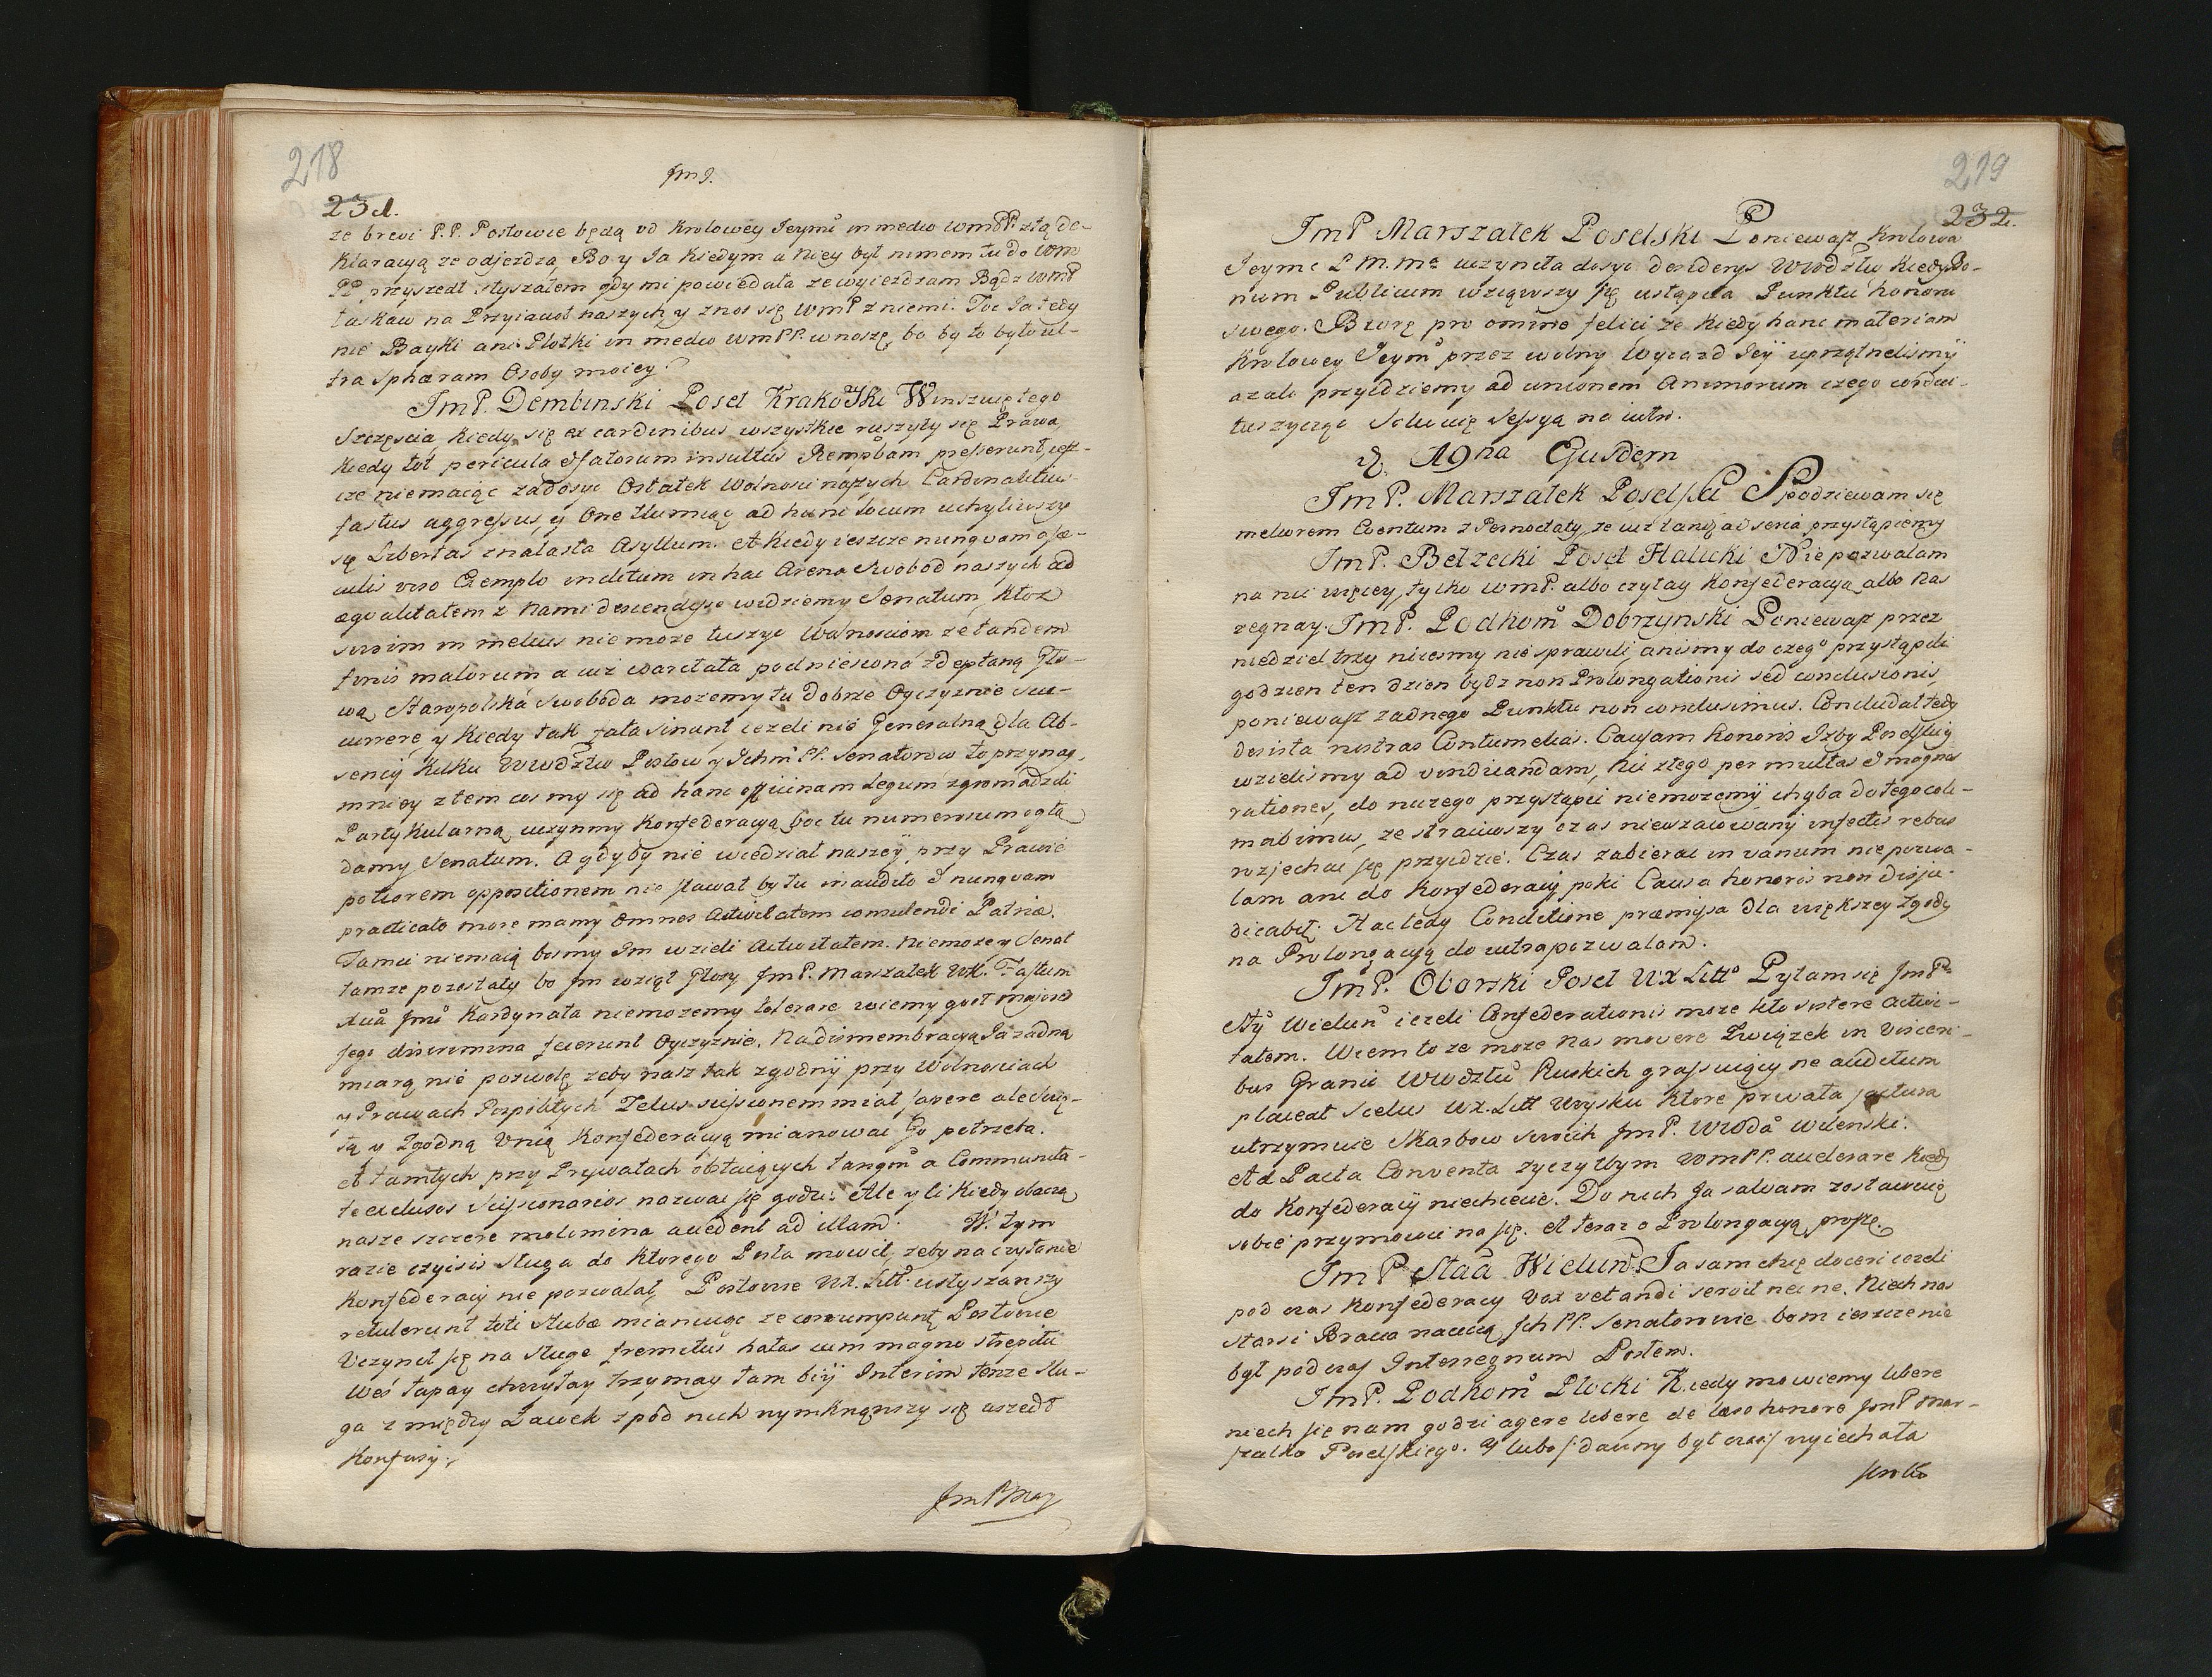 218
Jm P.
231.
ze brevi P.P. Posłowie będą od Krolowey Jeymci in medio WmPP. z tą de-
klaracyą ze odjezdza, Bo y Ja kiedym u Niey był nimem tu do Wm
PP przyszedł słyszałem gdy mi powiedała ze wyiezdzam Bądz WmP
łaskaw na Przyiacioł naszych y znos się WmP z niemi. Toc Ja tedy
nie Bayki ani Plotki in medio WmPP. wnoszę, bo by to było ul-
tra Sphæram Osoby moiey.
JmP. Dembinski Poseł Krakowski Winszuię tego
Szczęscia kiedy się ex cardinibus wszystkie ruszyły się Prawa,
kiedy tot pericula & fatorum insultus Rempbam presserunt jesz-
cze niemaiąc zadosyc Ostatek Wolnosci naszych Cardinalitius
fastus aggressus, y One tłumiąc ad hunc locum uchyliwszy
są Libertas znalasła Asyllum. A kiedy ieszcze nunquam a sæ-
culis viso Exemplo inclitum in hac Arena Swobod naszych ad
æqvalitatem z Nami descendisse widziemy Senatum, ktoz
swoim in melius nie moze tuszyc Wolnosciom ze tandem
finis malorum a iuz
wą Staropolska Swoboda mozemy tu dobrze Oyczyznie suc-
currere y kiedy tak fata sinunt jezeli nie Generalną dla Ab-
sencij kilku Wwdztw Posłow y Ichm PP. Senatorow to przynay-
mniey z tem cos my się ad hanc officinam Legum zgromadzili
Partykularną uczynmy Konfederacyą, boc tu numerosum oglą-
damy Senatum. A gdyby nie wiedział naszey przy Prawie
potiorem oppositionem nie stawał by tu inaudito & nunquam
practicato more mamy Omnes Activitatem consulendi Patriæ.
Tamci niemaią bosmy Im wzieli Activitatem. Niemoze y Senat
tamze pozostały bo Im wziął Głosy JmP. Marszałek WK. Fastum
Xcia Jmci Kardynała niemozemy tolerare wiemy quot majores
Jego discrimina fecerunt Oyczyznie. Na dismembracyą Ja zadną
miarą nie pozwolę zeby nasz tak zgodny przy Wolnosciach
y Prawach Pospolitych Zelus scissionem miał sapere ale
są y Zgodną Unią Konfederacyą mianowac Go potrzeba.
A tamtych przy Prywatach obstaiących tanqm a Communita-
te exclusos Scissionarios nazwac się godzi. Ale y li kiedy obaczą
nasze szczere molimina accedent ad illam. W. tym
razie czyisis sługa do ktorego Posła mowił, zeby na czytanie
Konfederacij nie pozwalał, Posłowie WX. Litt. usłyszawszy
retulerunt toti Stubæ mianuiąc ze corrumpunt Posłowie
Uczynił się na Sługe fremitus hałas cum magno strepitu
Weś łapay chwytay trzymay tam biy Interim tenze Słu-
ga z między Ławek spod nich wymknąwszy się uszedł
Konfusij.
JmP Mar
219
232.
JmP Marszałek Poselski Poniewasz Krolowa
Jeymc P. M. Ma uczyniła dosyc desideryis Wwdztw kiedy Bo-
num Publicum wziąwszy się ustąpiła Punktu honoru
swego. Biorę pro omine felici ze kiedy hanc materiam
Krolowey Jeym przez wolny Wyiazd Jey uprzątnelismy
azali przyidziemy ad unionem Animorum czego
tuszyc Solwuię Sessyą na iutro.
D. 19na Ejusdem
JmP. Marszałek Poselski Spodziewam się
meliorem Eventum z Pernoctaty, ze iuz tandem ad seria przystąpiemy
JmP. Bełzecki Poseł Halicki Niepozwalam
na nic więcey, tylko WmP. albo czytay Konfederacyą albo Nas
zegnay. JmP. Podkom Dobrzynski Poniewasz przez
niedziel trzy nicesmy nie sprawili, anismy do czego przystąpili
godzien ten dzien bydz non Prolongationis sed conclusionis
poniewasz zadnego Punktu non conclusimus. Concludat tedy
desista nostras Contumelias. Causam honoris Izby Poselskiey
wzielismy ad vindicandam, nic złego per multas & magnas
rationes, do niczego przystąpic niemozemy chyba do tego coli-
mabimus, ze strawiwszy czas nieoszacowany infectis rebus
rozjechac się przyidzie. Czas zabierac in vanum nie pozwa-
lam ani do Konfederacij poki Causa honoris non diju-
dicabit. Hac tedy Conditione præmissa dla większey zgody
na Prolongacyą do iutra pozwalam.
JmP. Oborski Poseł WX Litto Pytam się JmP
Sty Wielun iezeli Confederationis moze kto sistere activi-
tatem. Wiem to ze moze nas movere Związek in visceri-
bus Granic Wwdztw Ruskich grassuiący ne auditum
placeat Scelus WX. Litt Uzysku ktore privata jactura
utrzymuie Skarbow swoich JmP. Wwda Wilenski.
Ad Pacta Conventa zyczyłbym WmPP. accelerare kiedy
do Konfederacij niechcecie. Do nich Ja salvam zostawuię
sobie przymowic na się. A teraz o Prolongacyą proszę.
JmP Staa Wielun. Ja sam chcę doceri iezeli
pod czas Konfederacij Vox vetandi servit nec ne. Niech nas
starsi Bracia nauczą Ich PP. Senatorowie bom ieszcze nie
był podczas Interregnum Posłem.
JmP. Podkom Płocki Kiedy mowiemy libere
niech się nam godzi agere libere, de læso honore JmP Mar-
szałka Poselskiego. Y lubo sz dawny był czas wyiechała
Krolo